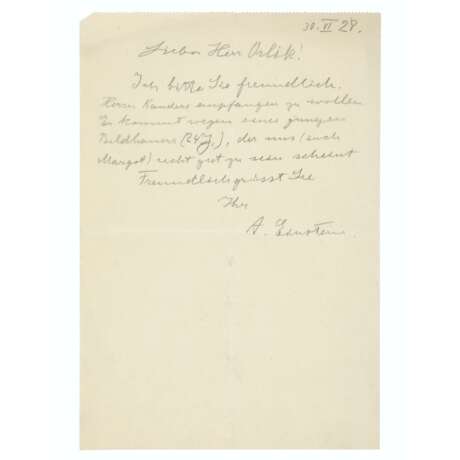 30. VI 28.
Lieber Herr Orlik!
Ich bitte Sie freundlich,
Herrn Kanders empfangen zu wollen
Er kommt wegen eines jungen
Bildhauers (24 J.), der uns (auch
Margot) recht gut zu sein scheint
Freundlich grüsst Sie
Ihr
A. Einstein.